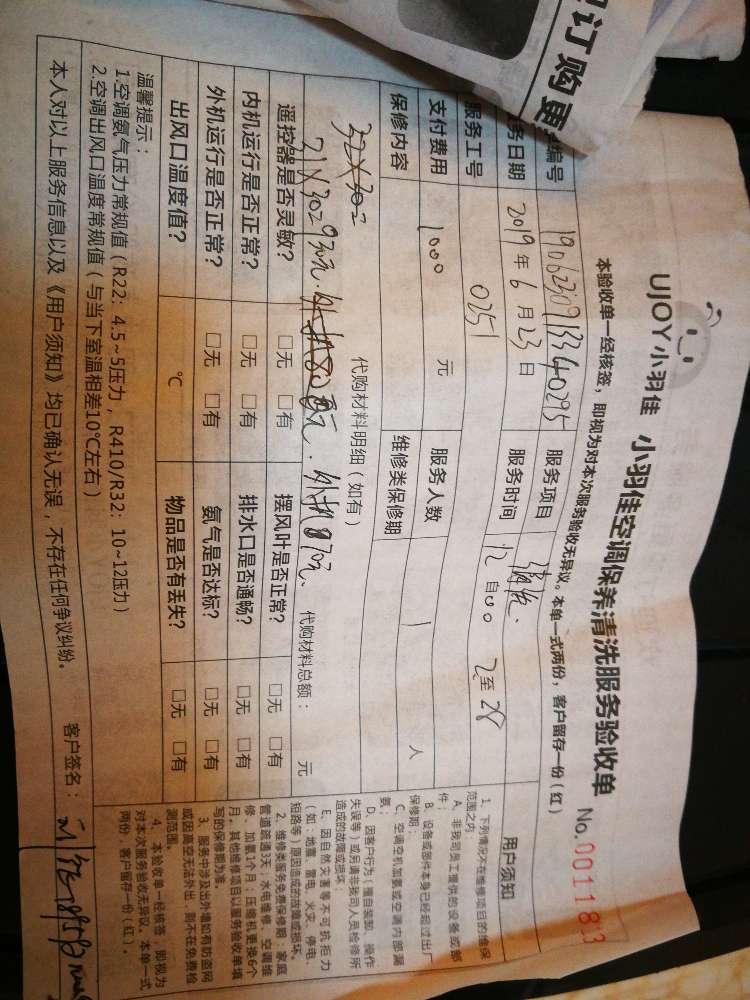 订购更
UJOY小羽佳 小羽佳空调保养清洗服务验收单 No.0011813
本验收单一经核签，即视为对本次服务验收无异议。本单一式两份，客户留存一份(红)
编号 19062309133440295 服务项目 清洗.
务日期 2019年6月23日 服务时间
服务工号 0251
支付费用 1000 元 服务人数 1 人
保修内容 维修类保修期
代购材料明细（如有）
32X302
代购材料总额： 元
遥控器是否灵敏? □无 □有 摆风叶是否正常? □无 □有
内机运行是否正常? □无 □有 排水口是否通畅? □无 □有
外机运行是否正常? □无 □有 氨气是否达标? □无 □有
出风口温度值? ℃ 物品是否有丢失? □无 □有
温馨提示：
1.空调氨气压力常规值（R22：4.5~5压力，R410/R32：10~12压力）
2.空调出风口温度常规值（与当下室温相差10℃左右）
本人对以上服务信息以及《用户须知》均已确认无误，不存在任何争议纠纷。 客户签名：
用户须知
1、下列情况不在维修项目的维保
范围之内：
A、非我司员工提供的设备或部
件；
B、设备或部件本身已经超过出厂
保修期；
C、空调空机加氨或空调内部漏
氨；
D、因客户行为（擅自装卸、操作
失误等）或另请非我司人员检修所
造成的故障或损坏；
E、因自然灾害等不可抗拒力
（如：地震、雷电、火灾、停电、
短路等）原因造成的故障或损坏。
2、维修类服务免费保修期：家庭
管道疏通3天、水电维修、空调维
修、加氨1个月；压缩机更换6个
月，其他维修项目以服务验收单填
写的保修期为准。
3、服务中涉及出外墙如有防盗网
或因高空无法外出，则不在免费检
测范围。
4、本验收单一经核签，即视为
对本次服务验收无异议。本单一式
两份，客户留存一份（红）。